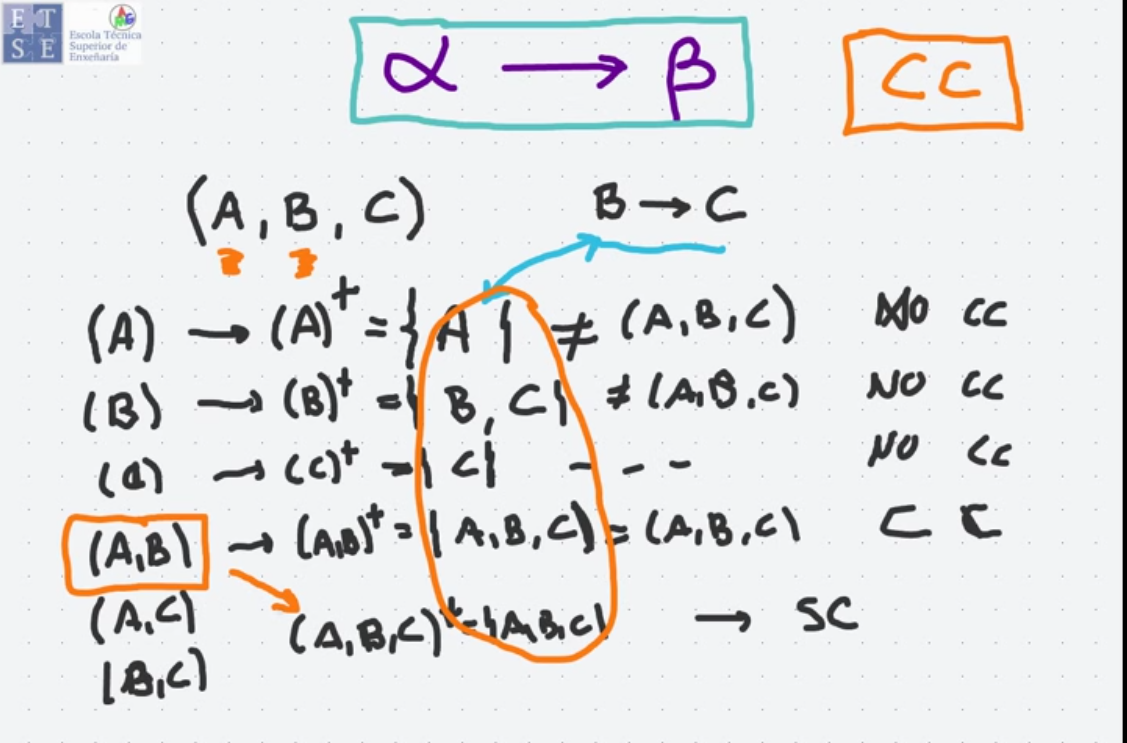 E T
S E
Escola Técnica
Superior de
Enxeñaría
α → β
CC
(A, B, C)
B → C
(A) → (A)⁺ = { A } ≠ (A, B, C) NO CC
(B) → (B)⁺ = { B, C } ≠ (A, B, C) NO CC
(C) → (C)⁺ = { C } - - - NO CC
(A,B) → (A,B)⁺ = { A, B, C } = (A, B, C) CC
(A,C)
(A,B,C)⁺ = {A,B,C} → SC
(B,C)